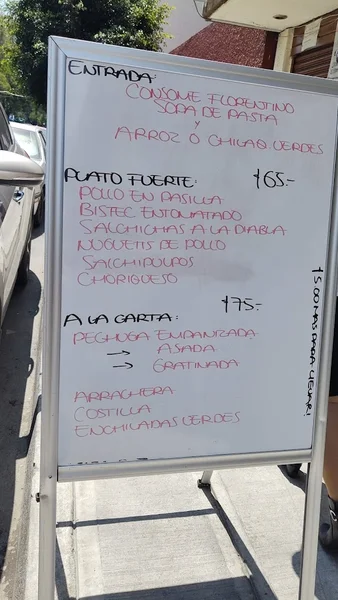 ENTRADA:
CONSOME FLORENTINO
SOPA DE PASTA
Y
ARROZ O CHILAQ. VERDES
PLATO FUERTE: $65.-
POLLO EN PASILLA
BISTEC ENTOMATADO
SALCHICHAS A LA DIABLA
NUGUETTS DE POLLO
SALCHIPULPOS
CHORIQUESO
A LA CARTA: $75.-
PECHUGA EMPANIZADA
→ ASADA
→ GRATINADA
ARRACHERA
COSTILLA
ENCHILADAS VERDES
$5.00 MAS PARA LLEVAR!